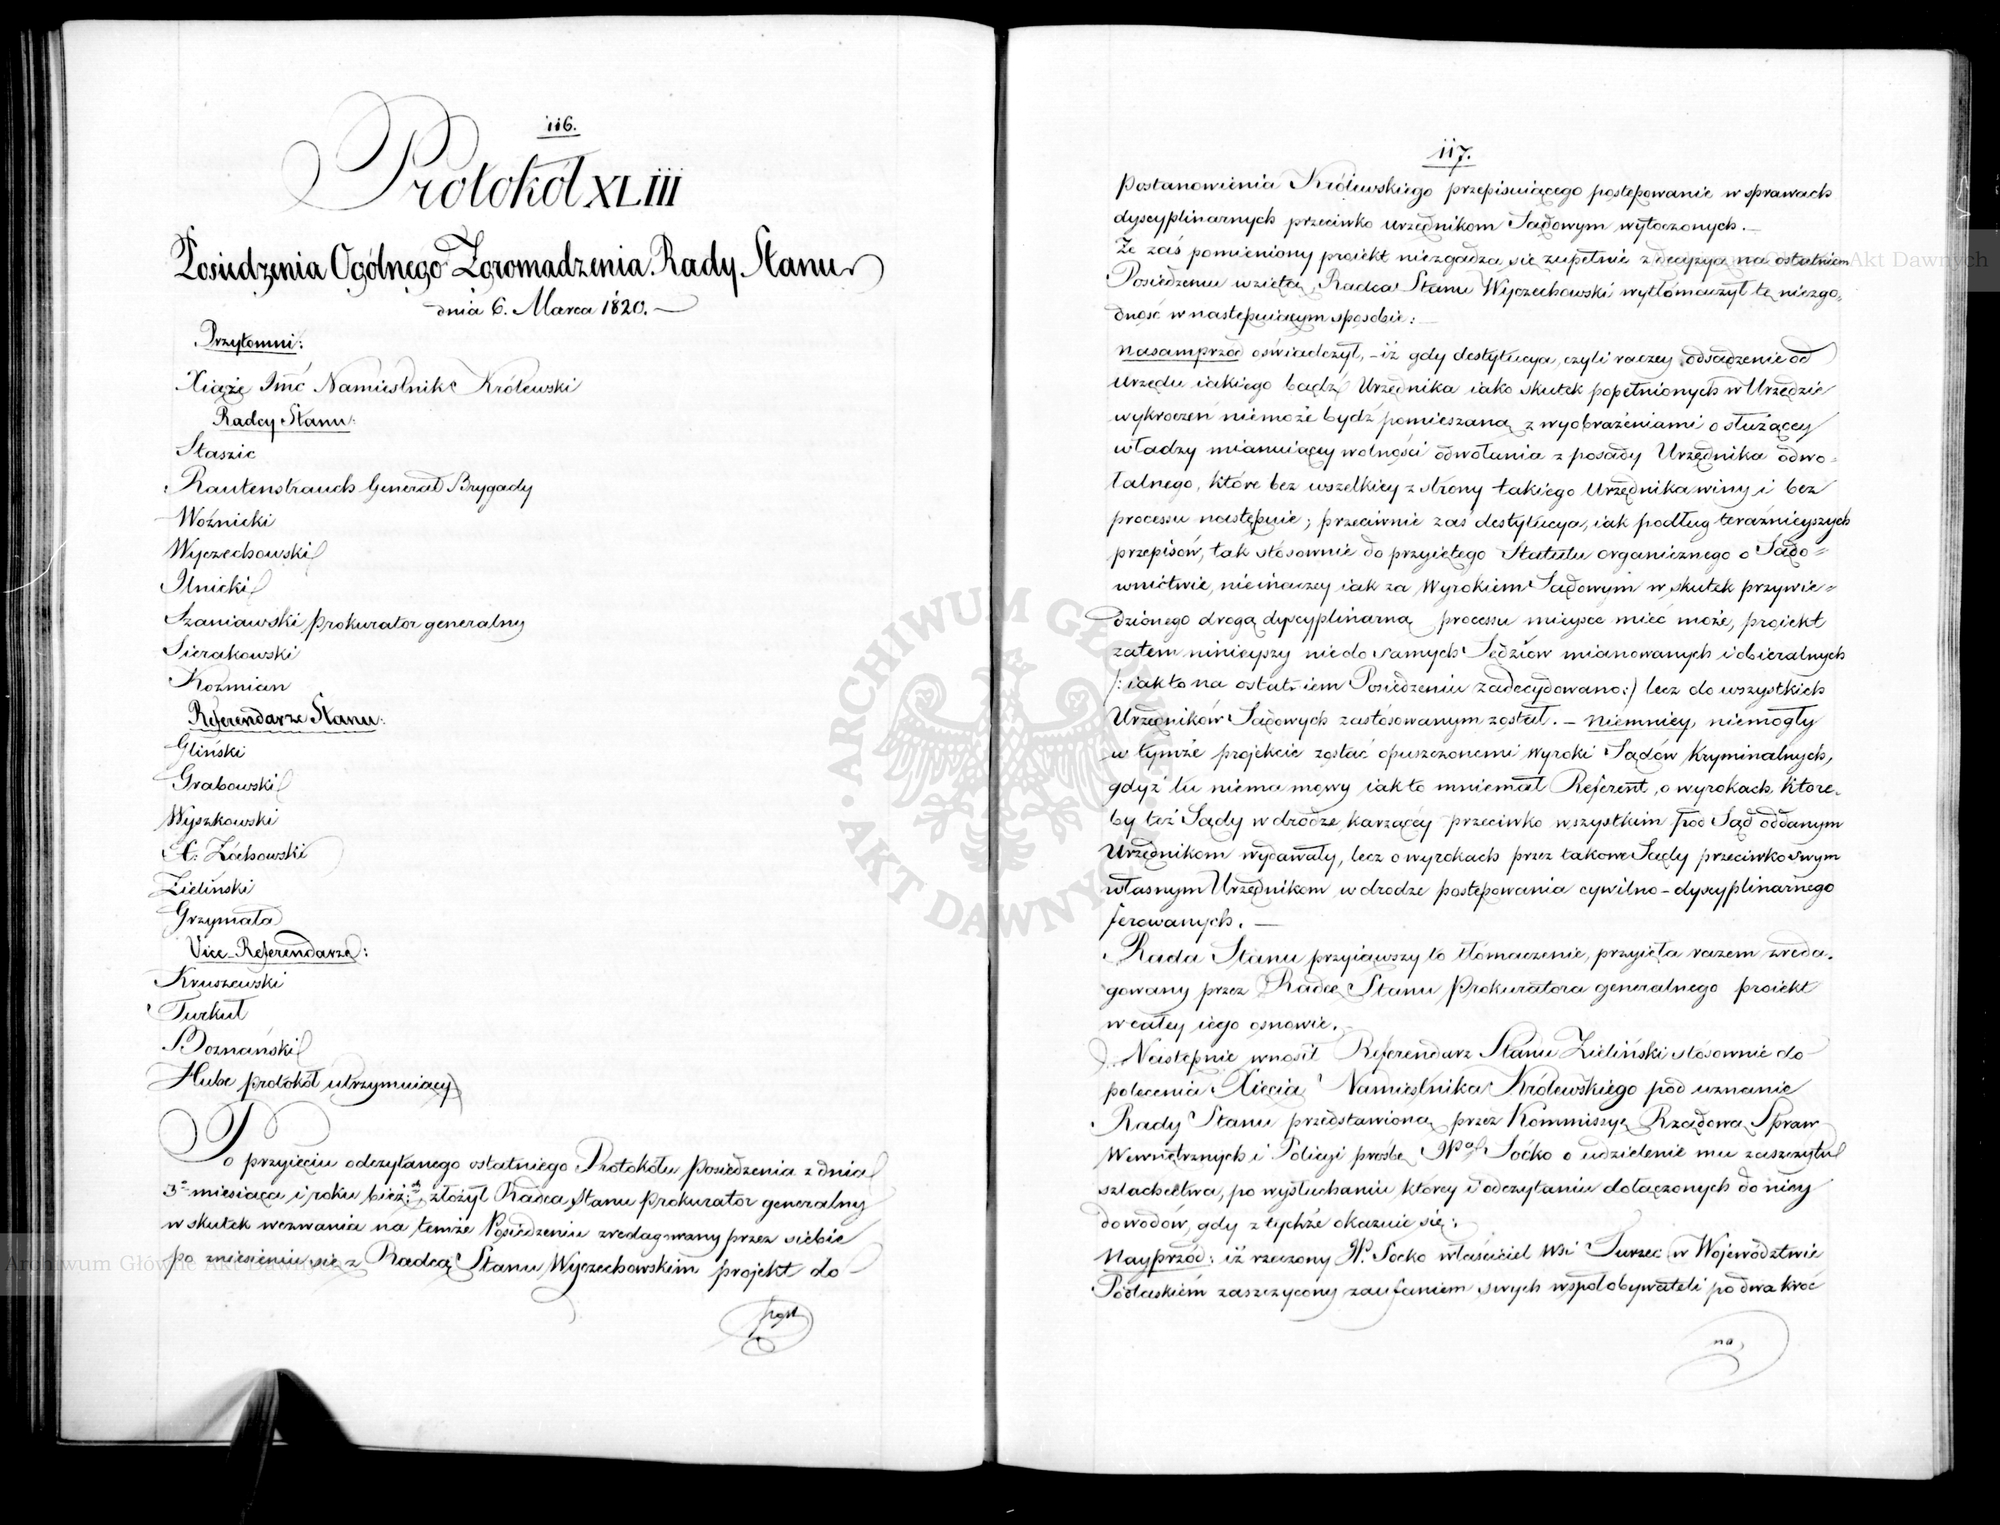 116.
Protokół XLIII
Posiedzenia Ogólnego Zgromadzenia Rady Stanu
dnia 6. Marca 1820. —
Przytomni:
Xiążę Jmć Namiestnik Królewski
Radcy Stanu:
Staszic
Rautenstrauch Generał Brygady
Woźnicki
Wyczechowski
Ilnicki
Szaniawski Prokurator generalny
Sierakowski
Koźmian
Referendarze Stanu:
Gliński
Grabowski
Wyszkowski
X. Żochowski
Zieliński
Grzymała
Vice-Referendarze:
Kruszewski
Turkuł
Boznański
Hube protokół utrzymuiący
Po przyięciu odczytanego ostatniego Protokółu Posiedzenia z dnia
3º miesiąca i roku bież: złożył Radca Stanu Prokurator generalny
w skutek wezwania na temże Posiedzeniu zredagowany przez siebie
po zniesieniu się z Radcą Stanu Wyczechowskim projekt do
post
117.
Postanowienia Królewskiego przepisuiącego postępowanie w sprawach
dyscyplinarnych przeciwko urzędnikom Sądowym wytoczonych. —
Że zaś pomieniony proiekt niezgadza się zupełnie z decyzyą na ostatniem
Posiedzeniu wziętą, Radca Stanu Wyczechowski wytłómaczył tę niezgo-
dność w następuiącym sposobie: —
Nasamprzód oświadczył, – iż gdy destytucya, czyli raczey odsądzenie od
Urzędu iakiego bądź Urzędnika iako skutek popełnionych w Urzędzie
wykroczeń niemoże bydź pomieszaną z wyobrażeniami o służącey
władzy mianuiącey wolności odwołania z posady Urzędnika odwo-
łalnego, które bez wszelkiey z strony takiego Urzędnika winy i bez
processu następuie; przeciwnie zaś destytucya, iak podług teraźnieyszych
przepisów, tak stósownie do przyiętego Statutu organicznego o Sądo-
wnictwie, nieinaczey iak za Wyrokiem Sądowym w skutek przywie-
dzionego drogą dyscyplinarną processu mieysce mieć może, proiekt
zatem ninieyszy nie do samych Sędziów mianowanych i obieralnych
/: iak to na ostatniem Posiedzeniu zadecydowano :/ lecz do wszystkich
Urzędników Sądowych zastósowanym został. – Niemniey, niemogły
w tymże projekcie zostać opuszczonemi Wyroki Sądów Kryminalnych,
gdyż tu niema mowy iak to mniemał Referent, o wyrokach, które-
by też Sądy w drodze karzącéy przeciwko wszystkim pod Sąd oddanym
Urzędnikom wydawały, lecz o wyrokach przez takowe Sądy przeciwko swym
własnym Urzędnikom w drodze postępowania cywilno-dyscyplinarnego
ferowanych. —
Rada Stanu przyiąwszy to tłómaczenie, przyięła razem zreda-
gowany przez Radcę Stanu Prokuratora generalnego proiekt
w całey iego osnowie.
Następnie wnosił Referendarz Stanu Zieliński stósownie do
polecenia Xięcia Namiestnika Królewskiego pod uznanie
Rady Stanu przedstawioną przez Kommissyę Rządową Spraw
Wewnętrznych i Policyi prośbę Soćko o udzielenie mu zaszczytu
szlachectwa, po wysłuchaniu którey i odczytaniu dołączonych do niey
dowodów, gdy z tychże okazuie się:
Nayprzód: iż rzeczony W. Soćko właściciel Wsi Turzec w Województwie
Podlaskiém zaszczycony zaufaniem swych wspołobywateli po dwa kroć
na,
ARCHIWUM GŁÓWNE AKT DAWNYCH
Archiwum Główne Akt Dawnych
Akt Dawnych